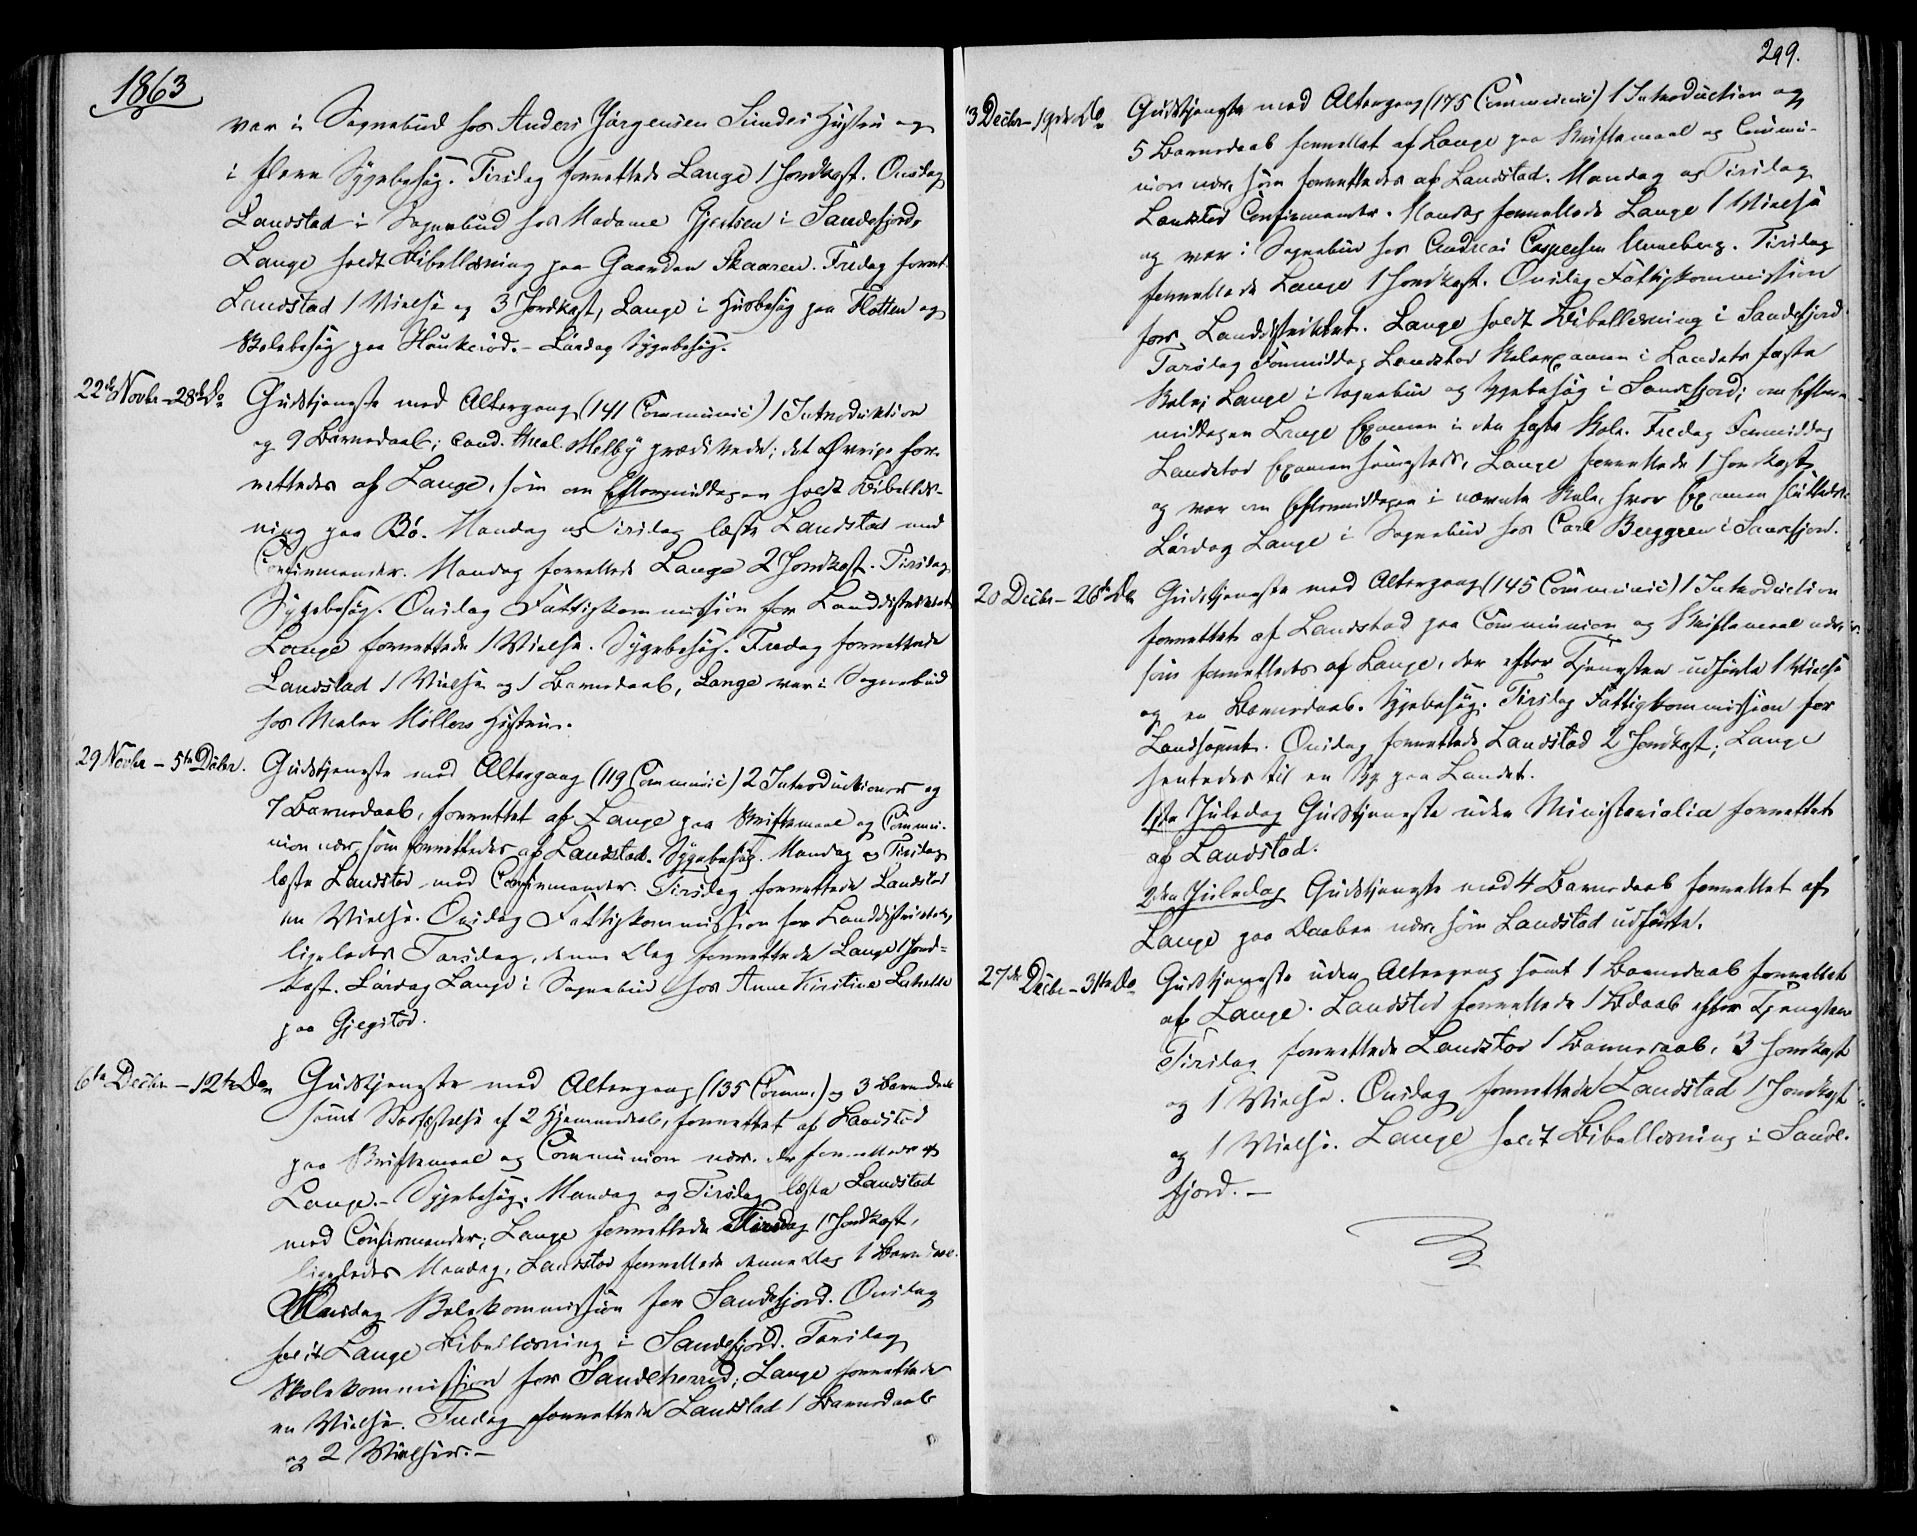 1863
var i Sognebud hos Anders Jørgensen Sundes Hustru og
i flere Sygebesøg. Tirsdag forrettede Lange 1 Jordkast. Onsdag
Landstad i Sognebud hos Madame Gjertsen i Sandefjord,
Lange holdt Bibellæsning paa Gaarden Skaaren. Fredag forret.
Landstad 1 Vielse og 3 Jordkast, Lange i Husbesøg paa Flotten og
Skolebesøg paa Haukerød. - Lørdag Sygebesøg.
22de Novbr - 28de Do
Gudstjeneste med Altergang (141 Communic) 1 Introduktion
og 9 Barnedaab; Cand. theol. Melby prædikede; det Øvrige for-
rettedes af Lange, som om Eftermiddagen holdt Bibellæs-
ning paa Bø. Mandag og Tirsdag læste Landstad med
Confirmander. Mandag forrettede Lange 2 Jordkast. Tirsdag
Sygebesøg. Onsdag Fattigkommission for Landdistriktet
Lange forrettede 1 Vielse. Sygebesøg. Fredag forrettede
Landstad 1 Vielse og 1 Barnedaab, Lange var i Sognebud
hos Maler Møllers Hustru.
29 Novbr - 5te Decbr.
Gudstjeneste med Altergang (119 Communic) 2 Introductioner og
7 Barnedaab, forrettet af Lange paa Skriftemaal og Commu-
nion nær, som forrettedes af Landstad. Sygebesøg. Mandag og Tirsdag
læste Landstad med Confirmander. Tirsdag forrettede Landstad
en Vielse. Onsdag Fattigkommission for Landdistriktet,
ligeledes Torsdag, denne Dag forrettede Lange 1 Jord-
kast. Lørdag Lange i Sognebud hos Anne Kirstine
paa
6te Decbr - 12te Do
Gudstjeneste med Altergang (135 Comm.) og 3 Barnedaab
samt Stadfæstelse af 2 Hjemmedaab, forrettet af Landstad
paa Skriftemaal og Communion nær, der forrettedes af
Lange. - Sygebesøg. Mandag og Tirsdag læste Landstad
med Confirmander; Lange forrettede Tirsdag 1 Jordkast,
ligeledes Mandag. Landstad forrettede denne Dag 1 Barnedaab.
Skolekommission for Sandefjord. Onsdag
holdt Lange Bibellæsning i Sandefjord. Torsdag
Skolekommission for Sandeherred; Lange forrettede
en Vielse. Fredag forrettede Landstad 1 Barnedaab
og 2 Vielser. -
299.
13 Decbr - 19de Do
Gudstjeneste med Altergang (175 Communic) 1 Introduction og
5 Barnedaab forrettet af Lange paa Skriftemaal og Commu-
nion nær, som forrettedes af Landstad. Mandag og Tirsdag
Landstad Confirmander. Mandag forrettede Lange 1 Vielse
og var i Sognebud hos Andreas Caspersen Unneberg. Tirsdag
forrettede Lange 1 Jordkast. Onsdag Fattigkommission
for Landdistriktet. Lange holdt Bibellæsning i Sandefjord.
Torsdag Formiddag Landstad Skoleexamen i Landets faste
Skole; Lange i Sognebud og Sygebesøg i Sandefjord; om Efter-
middagen Lange Examen i den faste Skole. Fredag Formiddag
Landstad Examen sammesteds, Lange forrettede 1 Jordkast
og var om Eftermiddagen i nævnte Skole, hvor Examen sluttedes.
Lørdag Lange i Sognebud hos Carl Berggren i Sandefjord.
20 Decbr - 26de Do
Gudstjeneste med Altergang (145 Communic) 1 Introduction
forrettet af Landstad paa Communion og Skriftemaal nær,
som forrettedes af Lange, der efter Tjenesten udførte 1 Vielse
og en Barnedaab. Sygebesøg. Tirsdag Fattigkommission for
Landsognet. Onsdag forrettede Landstad 2 Jordkast; Lange
hentedes til en Syg paa Landet.
1ste Juledag Gudstjeneste uden Ministerialia forrettet
af Landstad.
2den Juledag Gudstjeneste med 4 Barnedaab forrettet af
Lange paa Daaben nær, som Landstad udførte.
27de Decbr - 31te Do
Gudstjeneste uden Altergang samt 1 Barnedaab forrettet
af Lange. Landstad forrettede 1 Bdaab efter Tjenesten
Tirsdag forrettede Landstad 1 Barnedaab, 3 Jordkast
og 1 Vielse. Onsdag forrettede Landstad 1 Jordkast
og 1 Vielse. Lange holdt Bibellæsning i Sande-
fjord. -